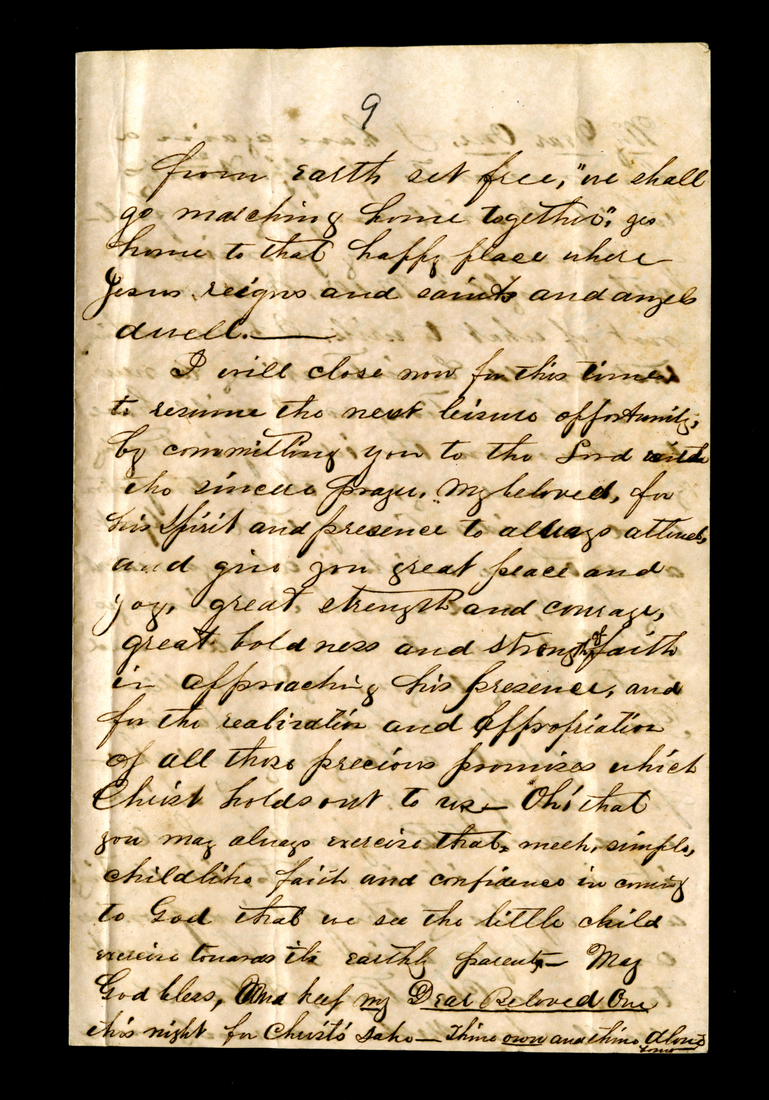 9
from earth set free, "we shall
go marching home together", go
home to that happy place where
Jesus reigns and saints and angels
dwell.
I will close now for this time
to resume the next leisure opportunity,
by committing you to the Lord with
the sincere prayer, my beloved, for
his spirit and presence to always attend,
and give you great peace and
joy, great strength and courage,
great boldness and strong faith
in approaching his presence, and
for the realization and appropriation
of all those precious promises which
Christ holds out to us — Oh! that
you may always exercise that meek, simple,
childlike faith and confidence in coming
to God that we see the little child
exercise towards its earthly parents — May
God bless, and keep my Dear Beloved One
this night for Christ's sake — Thine own and thine alone